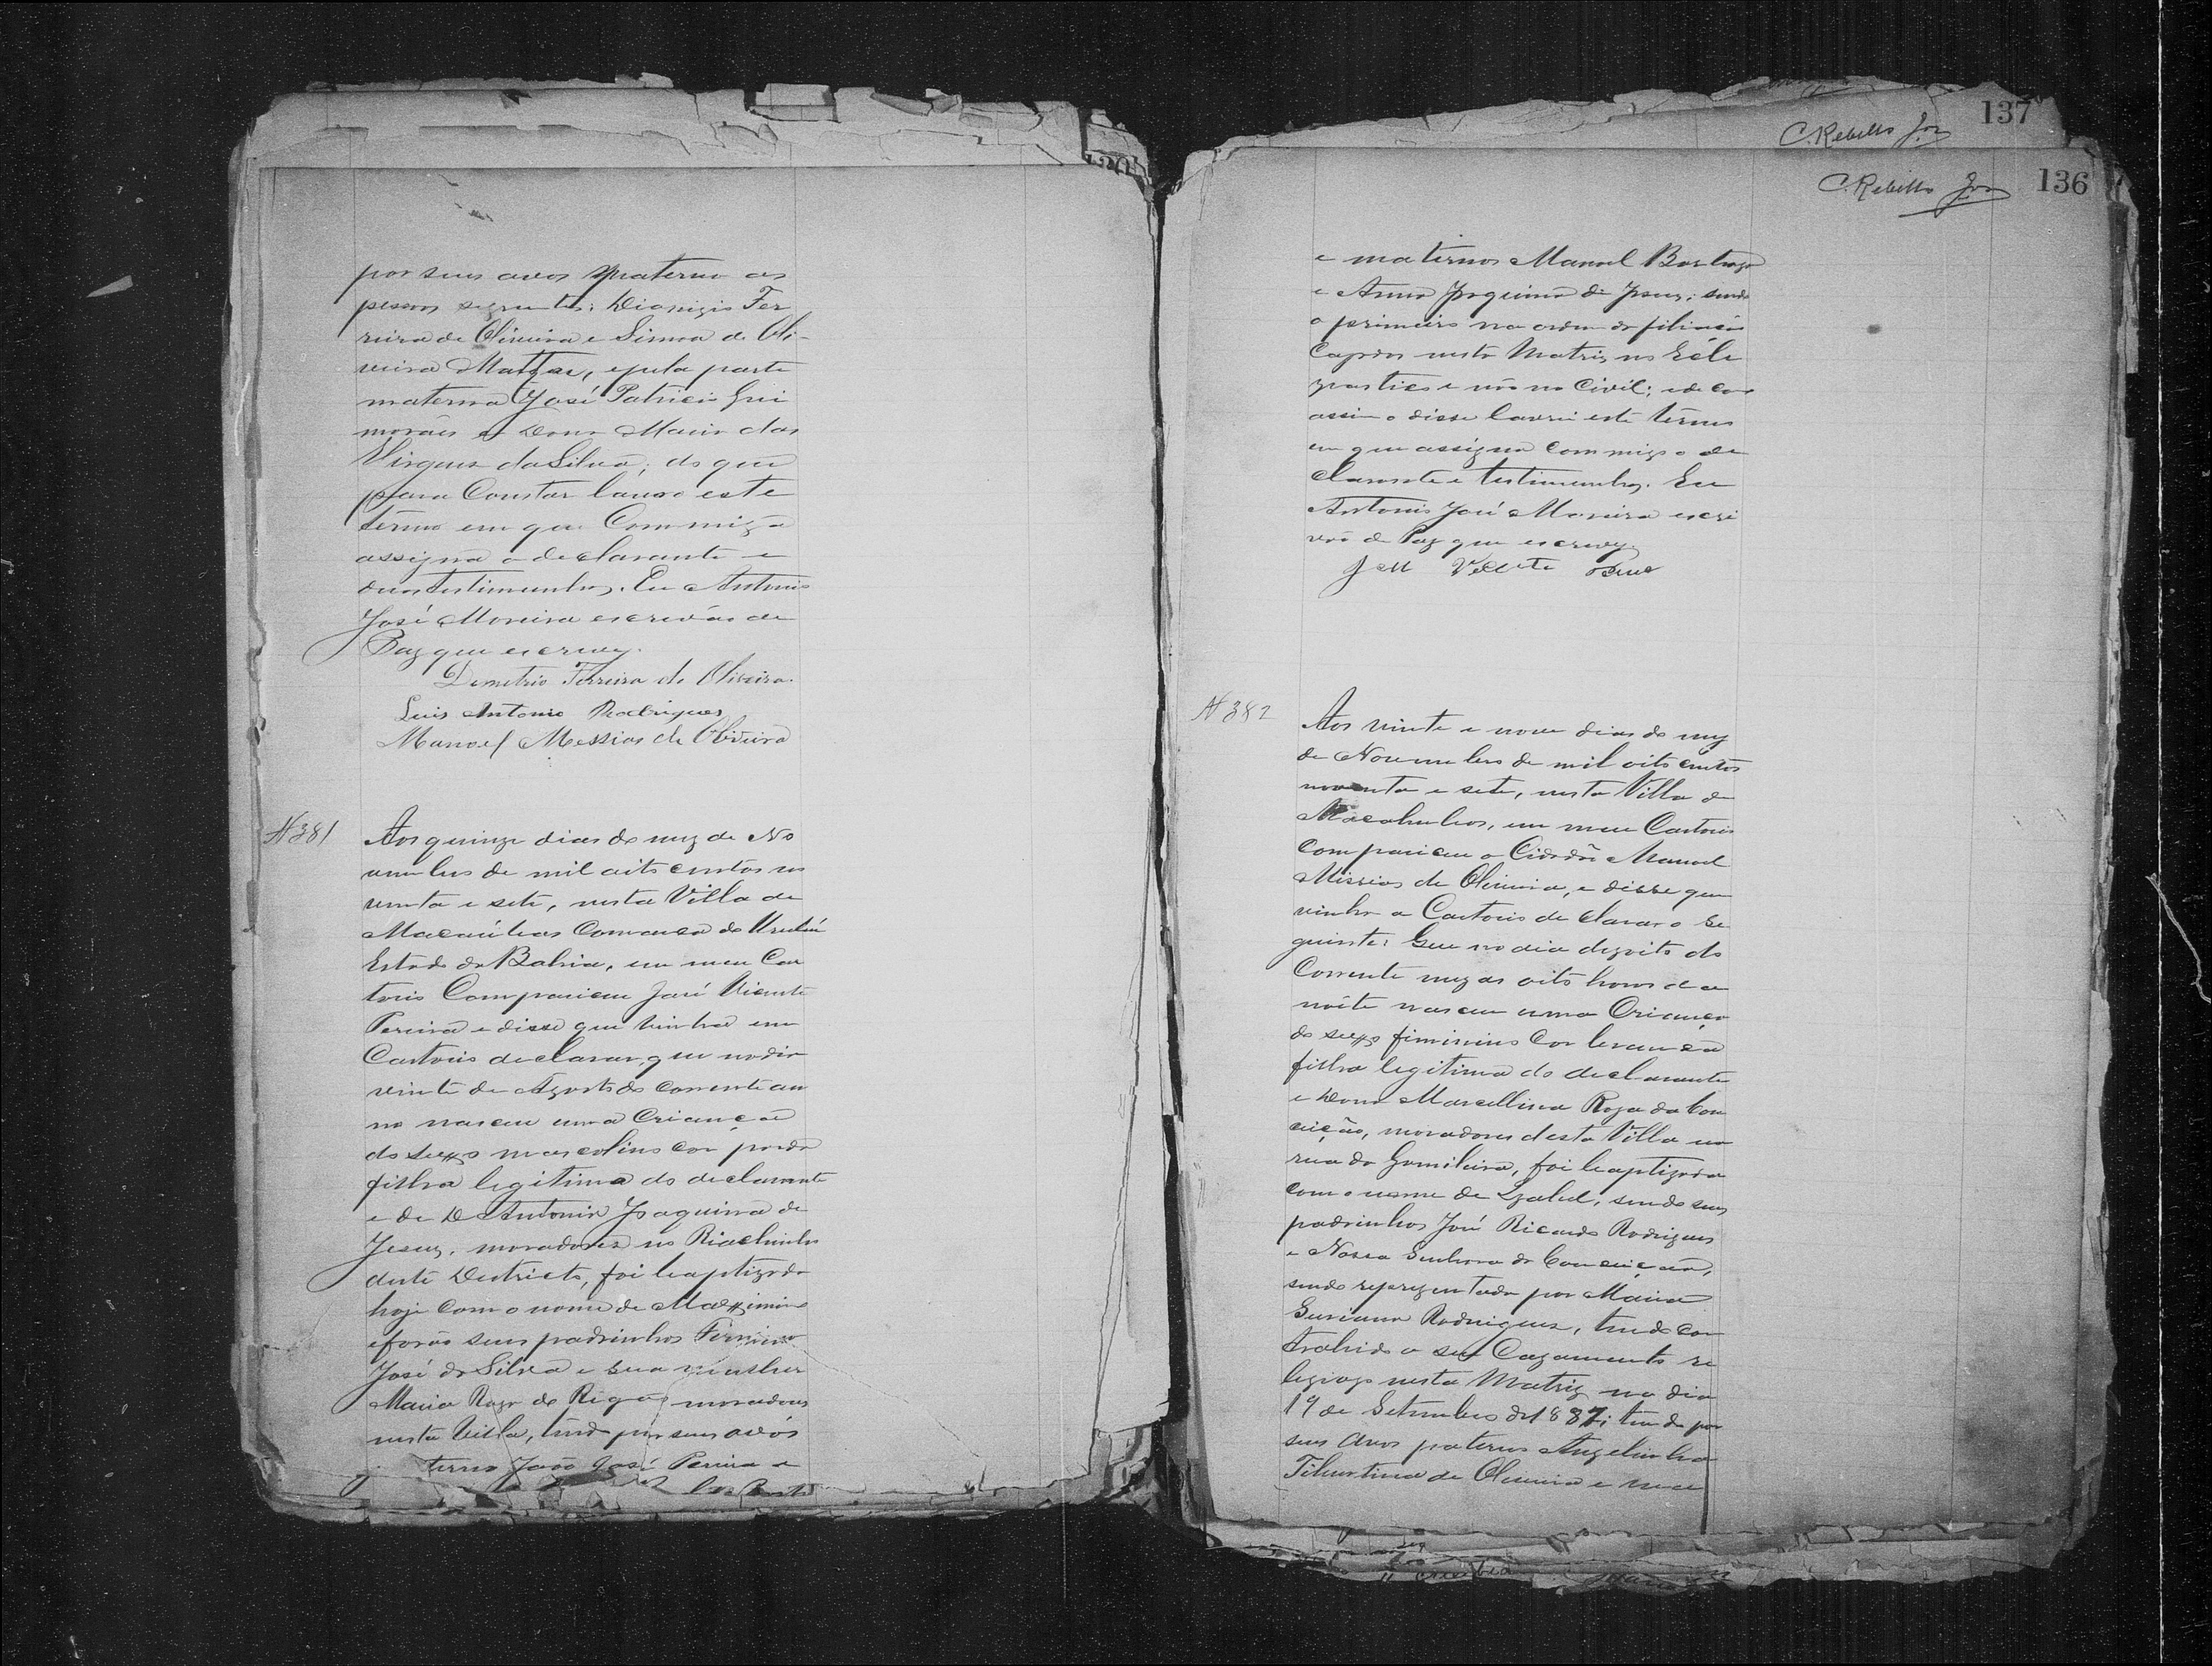 por seus avos paterno as
pessoas seguintes: Dionizio Fer
reira de Oliveira e Simoa de Oli-
veira Mattos, e pela parte
materna José Patricio Gui
morães e Dona Maria das
Virgens da Silva; do que
para Constar lavro este
têrmo em que Commigo
assigna o declarante e
duas testimunhas. Eu Antonio
José Moreira escrivão de
Paz que escrevy.
Demetrio Ferreira de Oliveira.
Luis Antonio Rodrigues
Manoel Messias de Oliveira
N 381
Aos quinze dias do mez de No
vembro de mil oito centos no
venta e sete, nesta Villa de
Macaúbas Comarca do Urubú
Estado da Bahia, em meu Car
torio Compareceu José Vicente
Pereira e disse que vinha em
Cartorio declarar, que no dia
vinte de Agosto do corrente an
no nasceu uma Criança
do sexo mascolino cor parda
filha legitima do declarante
e de D Antonia Joaquina de
Jesuz, moradores no Riachinho
deste Destricto, foi baptizado
hoje com o nome de Maximino
e forão seus padrinhos Firmino
José da Silva e sua mulher
Maria Roza de moradores
nesta Villa, tendo por seus avós
terno João José Pereira e
137
C. Rebello Jor
C. Rebello Jor 136
e maternos Manoel
e Anna Joaquina de Jesuz; sendo
o primeiro na ordem da filiação
Cazados nesta Matriz no Ecle
ziastico e não no Civil; e de como
assim o disse lavrei este têrmo
em que assigna commigo o de
clarante e testimunhas. Eu
Antonio José Moreira escri
vão de Paz que escrevy.
N 382
Aos vinte e nove dias do mez
de Novembro de mil oito centos
noventa e sete, nesta Villa de
Macahubas, em meu Cartorio
compareceu o Cidadão Manoel
Missias de Oliveira, e disse que
vinha a Cartorio declarar o se
guinte: Que no dia dezoito do
Corrente mez as oito horas da
noite nasceu uma Criança
do sexo fiminino Cor branca
filha legitima do declarante
e Dona Marcellina Roza da Con
ceição, moradores desta Villa na
rua da Gamileira, foi baptizada
com o nome de Izabel, sendo seus
padrinhos José Ricardo Rodrigues
e Nossa Senhora da Conceição,
sendo reprezentada por Maria
Rodrigues, tendo con
trahido o seu Cazamento re
legiozo nesta Matriz no dia
19 de Setembro de 1887; tendo por
seus Avos paternos
Tiburtina de Oliveira e